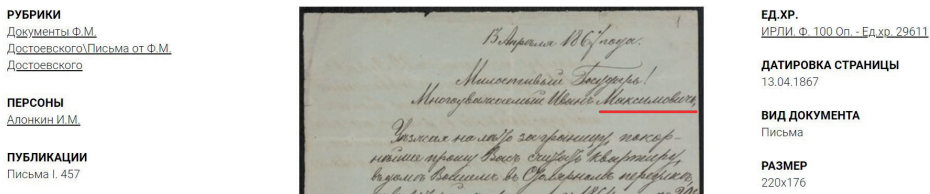 РУБРИКИ
Документы Ф.М.
Достоевского\Письма от Ф.М.
Достоевского
ПЕРСОНЫ
Алонкин И.М.
ПУБЛИКАЦИИ
Письма I. 457
1
13 Апреля 1867 года.
Милостивый Государь!
Многоуважаемый Иванъ Максимовичъ,
Уѣзжая на лѣто заграницу, покор-
нѣйше прошу Васъ считать квартиру,
въ домѣ Вашемъ въ Столярномъ переулкѣ,
ЕД.ХР.
ИРЛИ. Ф. 100 Оп. - Ед.хр. 29611
ДАТИРОВКА СТРАНИЦЫ
13.04.1867
ВИД ДОКУМЕНТА
Письма
РАЗМЕР
220х176